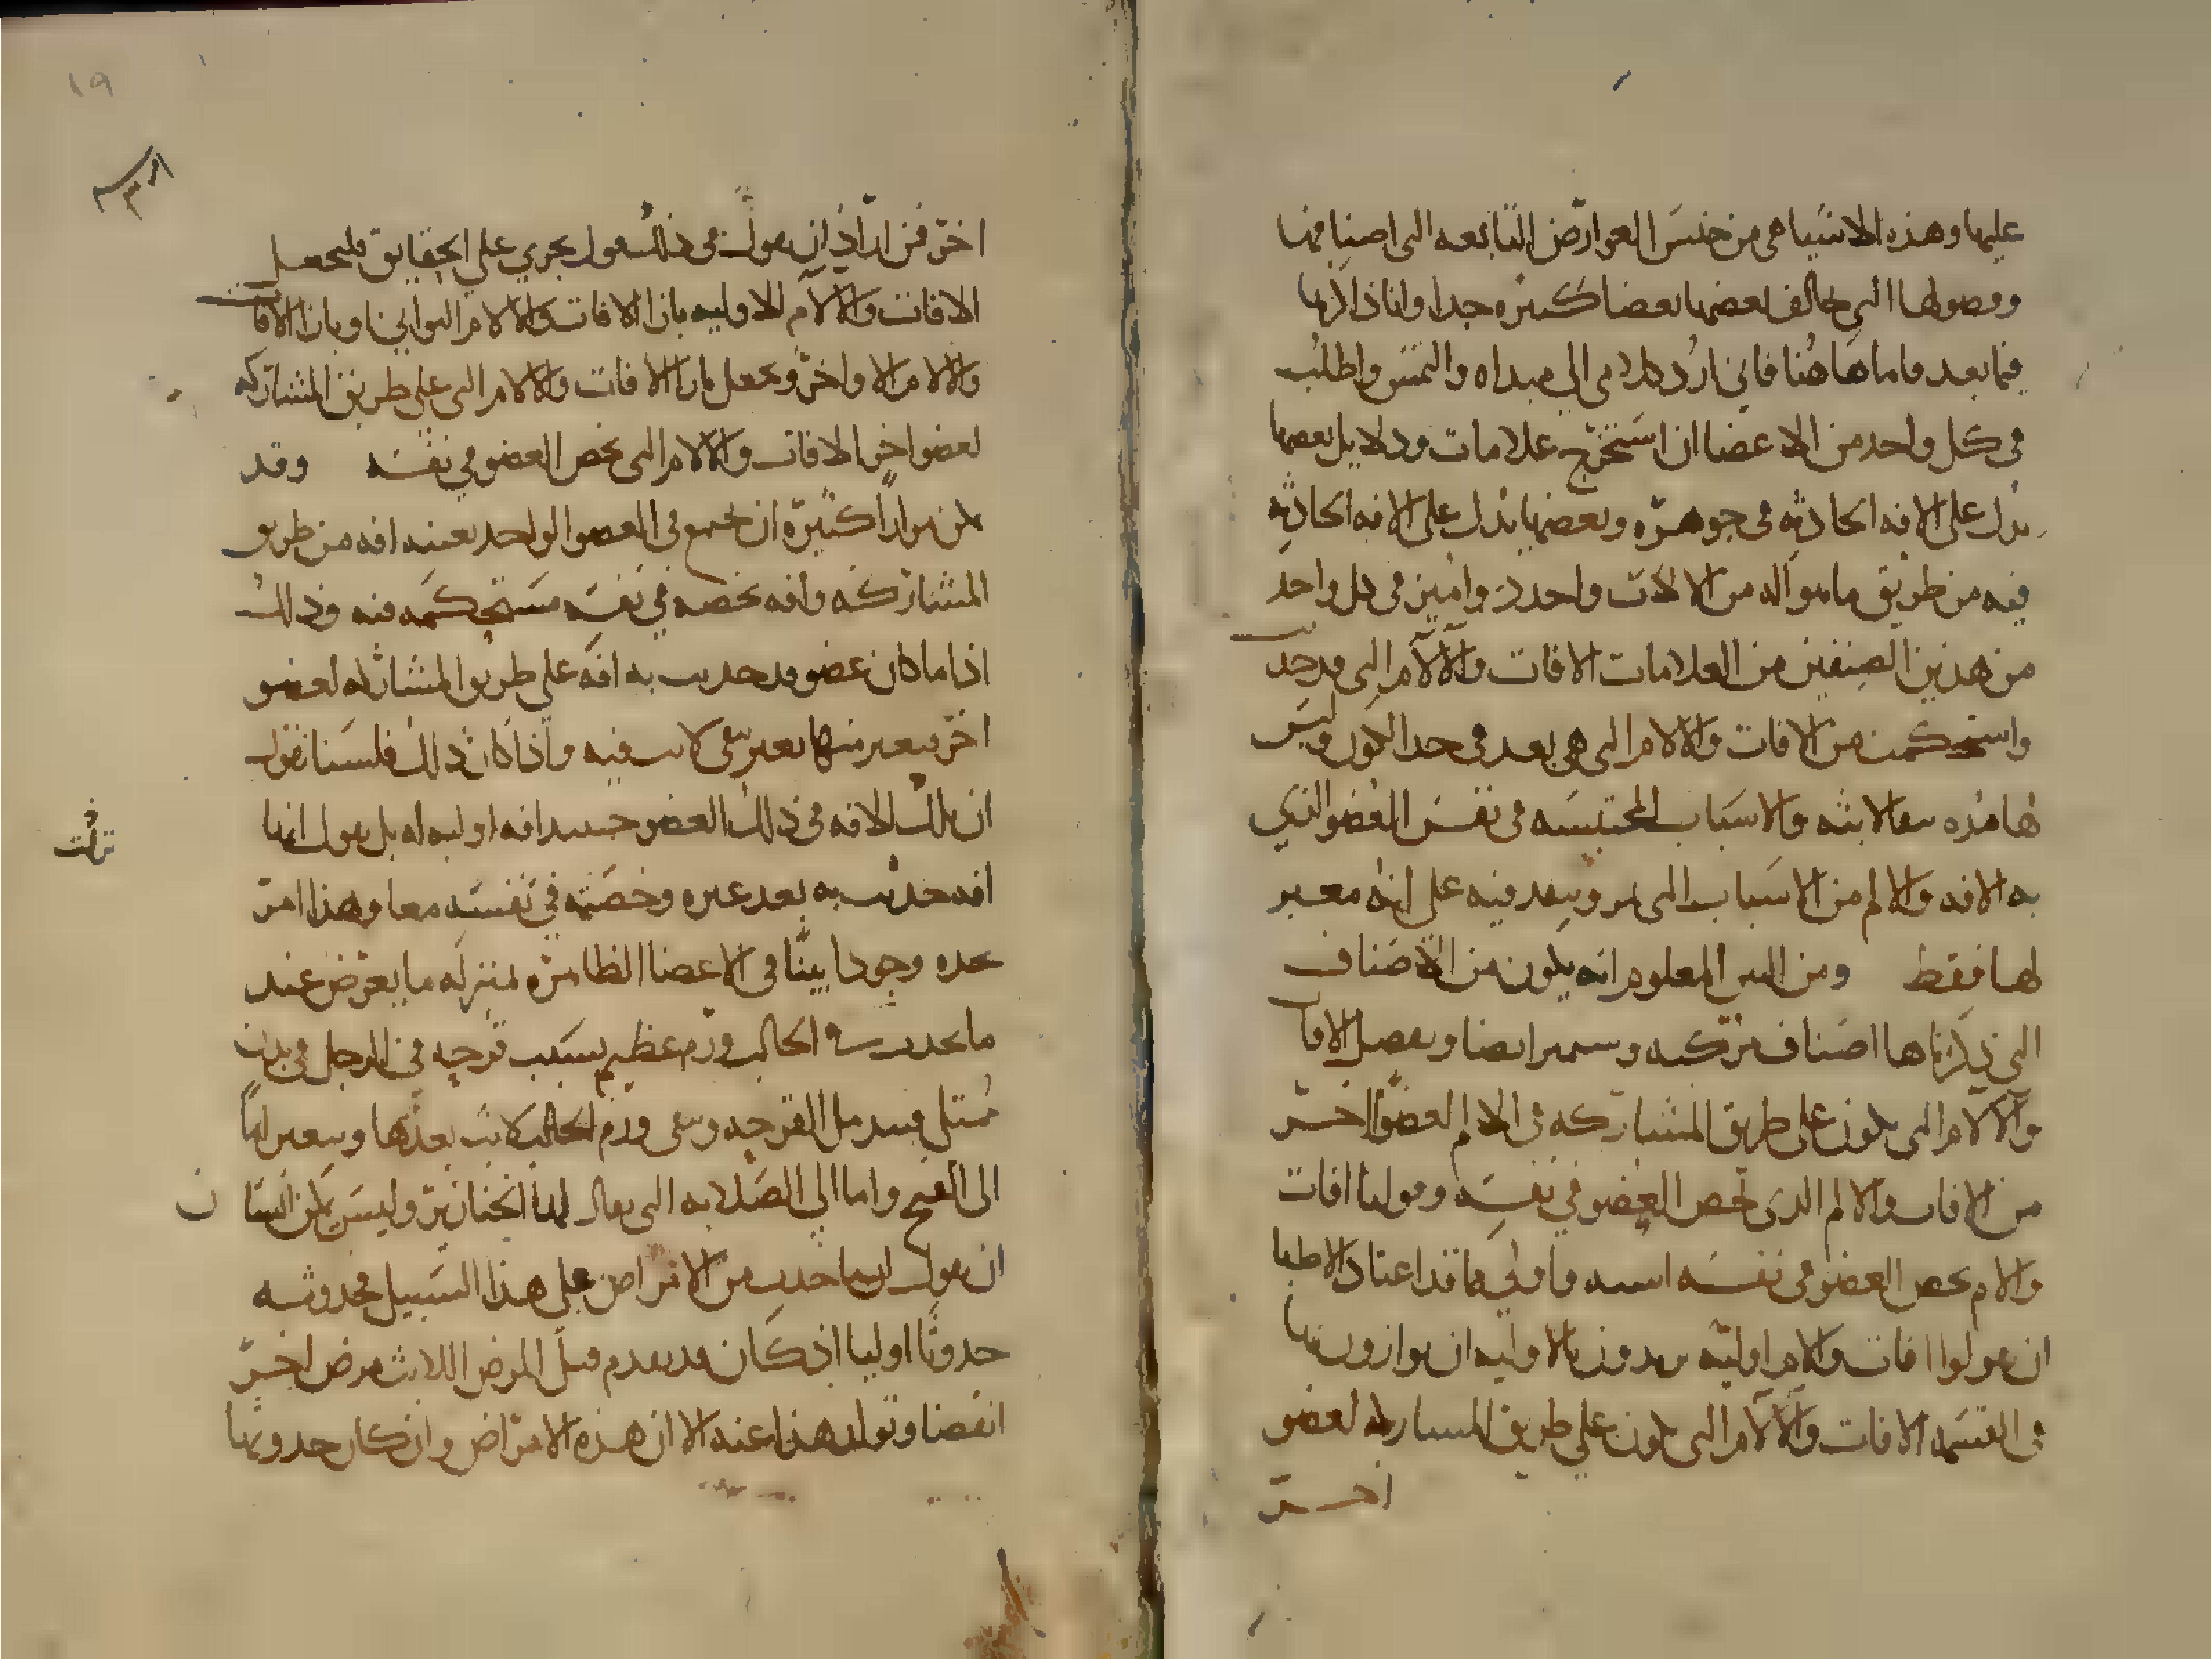 عليها وهذه الاشيا هي من جنس العوارض التابعه التي اصنافها
وفصولها التي يخالف بعضها بعضا كثيره جدا وانا ذاكرها
فيما بعد فاما هاهنا فاني ارد كلامي الى مبداه والتمس واطلب
في كل واحد من الاعضا ان استخرج علامات ودلايل بعضها
يدل على الافه الحادثه في جوهره وبعضها يدل على الافه الحادثه
فيه من طريق ما هو اله من الالات واحدد واميز في كل واحد
من هذين الصنفين من العلامات الافات والالام التي قد حدثت
واستحكمت من الافات والالام التي هي بعد في حد الكون وليس
لها مده بقا لابثه والاسباب المحتبسه في نفس العضو الذي
به الافه والالم من الاسباب التي تمر وتنفد فيه على انه معبر
لها فقط ومن البين المعلوم انه يكون من الاصناف
التي ذكرناها اصناف مركبه وسنميز ايضا ونفصل الافات
والالام التي تكون على طريق المشاركه في الالم لعضو اخر
من الافات والالم الذي تخص العضو في نفسه وقولنا افات
والام تخص العضو في نفسه اشبه واولى مما قد اعتاد الاطبا
ان يقولوا افات والام اوليه يريدون بالاوليه ان يوازون بها
في القسمه الافات والالام التي تكون على طريق المشاركه لعضو
اخر
١٩
اخر فمن اراد اذن ان يقول في ذلك قولا يجري على الحقايق فليجعل
الافات والالام الاوليه بازا الافات والالام الثواني او بازا الافات
والالام الاواخر ويجعل بازا الافات والالام التي على طريق المشاركه
لعضو اخر الافات والالام التي تخص العضو في نفسه وقد
يمكن مرارا كثيره ان يجتمع في العضو الواحد بعينه افه من طريق
المشاركه وافه تخصه في نفسه مستحكمه فيه وذلك
اذا ما كان عضو قد حدثت به افه على طريق المشاركه لعضو
اخر فتغير منها تغيرا يبقى لابث فيه واذا كان ذلك فلسنا نقول
ان تلك الافه في ذلك العضو حينيذ افه اوليه له بل نقول انها
افه حدثت به بعد غيره وخصته في نفسه معا وهذا امر
نجده وجودا بينا في الاعضا الظاهره بمنزله ما يعرض عند
ما يحدث في الحالب ورم عظيم بسبب قرحه في الرجل في بدن
ممتلي فيندمل القرحه ويبقى ورم الحالب لابث بعدها ويتغير اما
الى القيح واما الى الصلابه التي يقال لها الخنازير وليس يمكن انسان
ان يقول ان ما حدث من الامراض على هذا السبيل فحدوثه
حدوثا اوليا اذ كان قد تقدم قبل المرض اللابث مرض اخر
انقضا وتولد هذا عنه الا ان هذه الامراض وان كان حدوثها
تركت